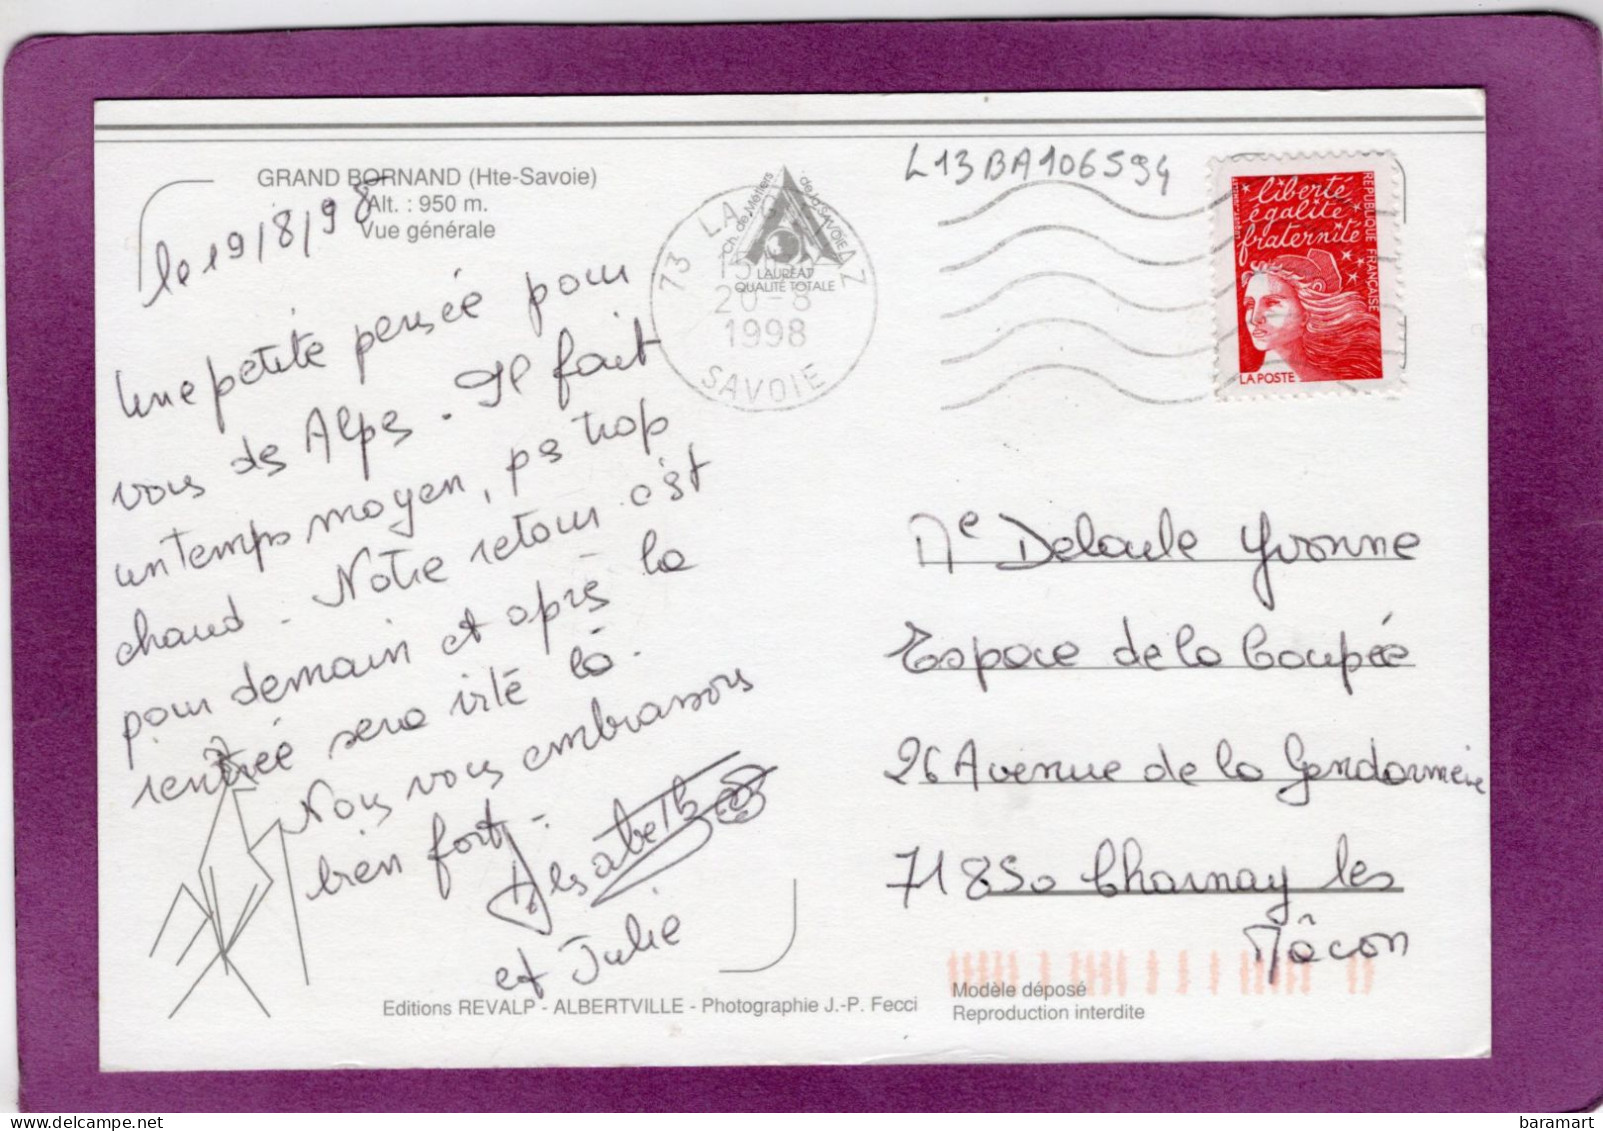 GRAND BORNAND (Hte-Savoie)
Alt. : 950 m.
Vue générale
le 19/8/98
Une petite pensée pour
vous des Alpes. Il fait
un temps moyen, ps trop
chaud - Notre retour c'est
pour demain et après la
rentrée sera vite là.
Nous vous embrassons
bien fort -
Elisabeth
et Julie
Editions REVALP - ALBERTVILLE - Photographie J.-P. Fecci
73 LA
Ch. de Métiers de la SAVOIE
LAURÉAT
QUALITÉ TOTALE
20-8
1998
SAVOIE
L13BA106594
liberté
égalité
fraternité
REPUBLIQUE FRANÇAISE
LA POSTE
Me Delaule Yvonne
Espace de la Coupée
26 Avenue de la Gendarmerie
71850 Charnay les
Mâcon
Modèle déposé
Reproduction interdite
baramart